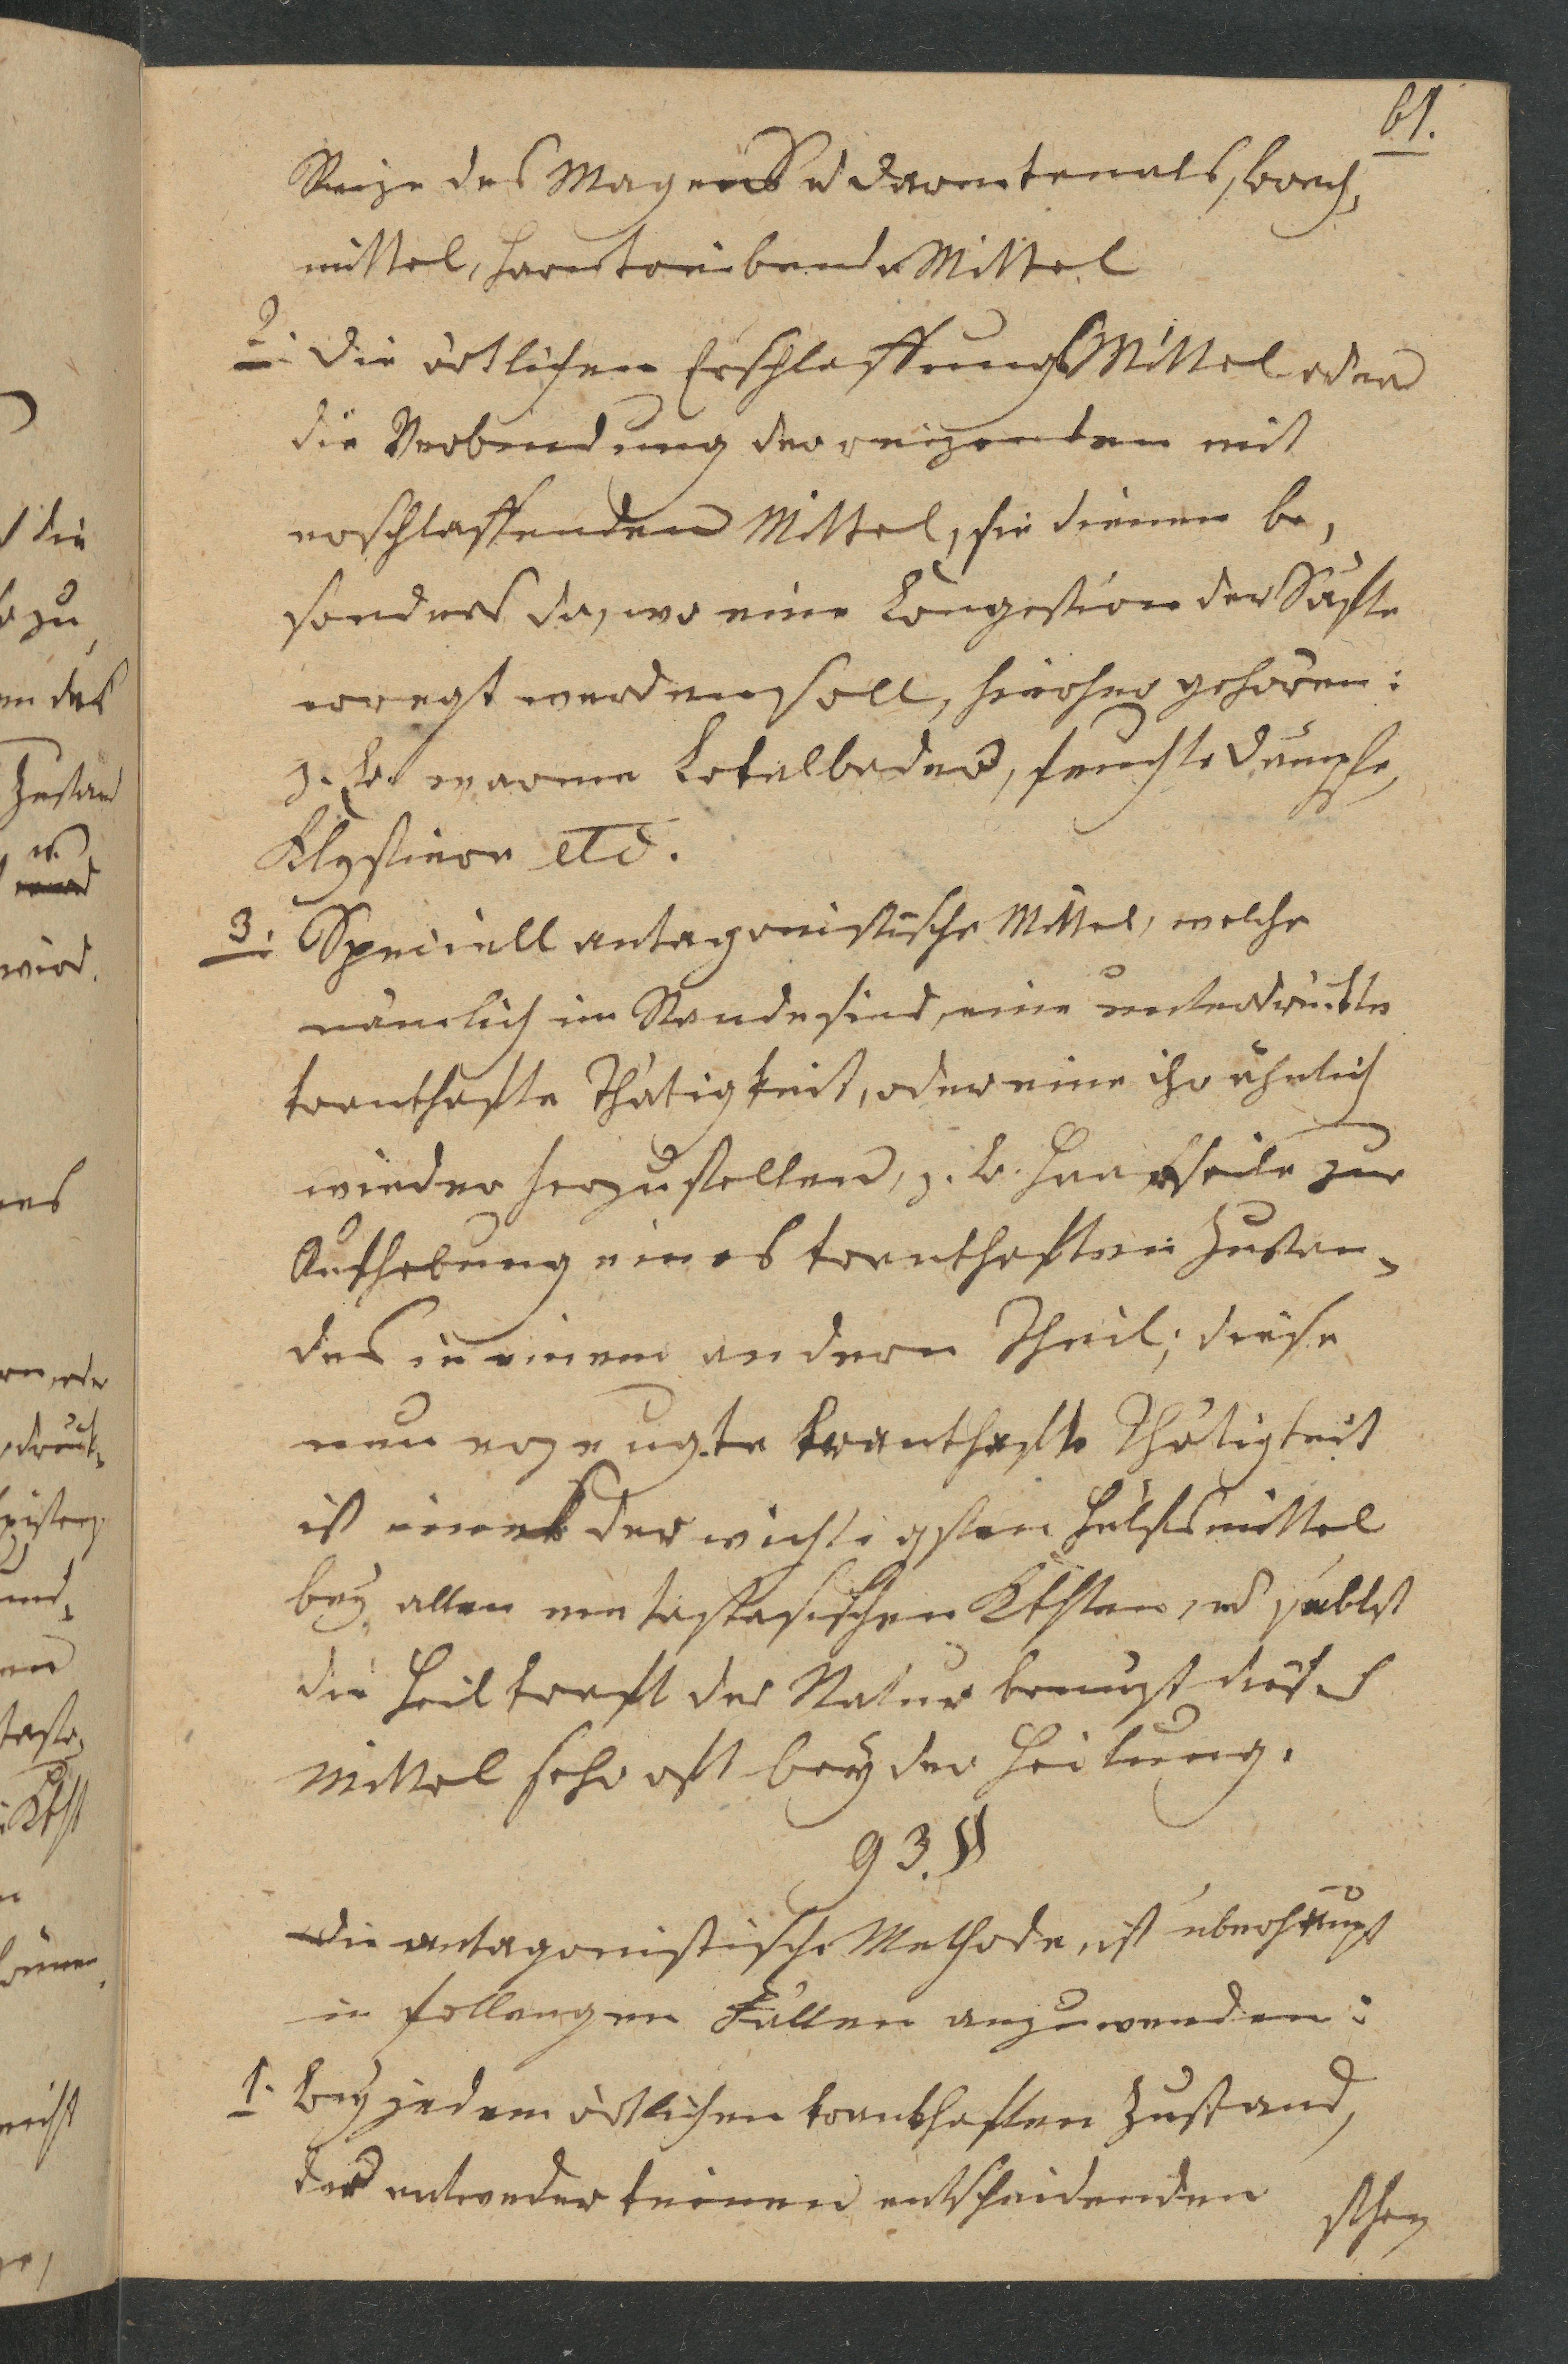 61.
Reize des Magens u Darmkanals, Brech,
mittel, harntreibende Mittel
2. Die örtlichen Erschlaffungs Mittel oder
die Verbindung der reizenden mit
erschlaffenden Mittel, sie dienen be,
sonders da, wo eine Congestion der Säfte
erregt werden soll, hierher gehören:
z. B. warme Lokalbäder, feuchte Dämpfe,
Klystiere etc.
3. Speciell antagonistische Mittel, welche
nämlich im Stande sind, eine unterdrückte
krankhafte Thätigkeit, oder eine ihr ähnlich
wieder herzustellen, z. B. Haarseile zur
Aufhebung eines krankhaften Zustan-
des in einem andern Theil; diese
neu erzeugte krankhafte Thätigkeit
ist eines der wichtigsten Hülfsmittel
bey allen metastasischen Kkhten, u selbst
die Heilkraft der Natur benuzt dieses
Mittel sehr oft bey der Heilung.
93. §
Die antagonistische Methode, ist überhaupt
in follengen Fällen anzuwenden:
1. Bey jedem örtlichen krankhaften Zustand,
der entweder keinen entscheidenden
die
zu
des
Zustand
wird.